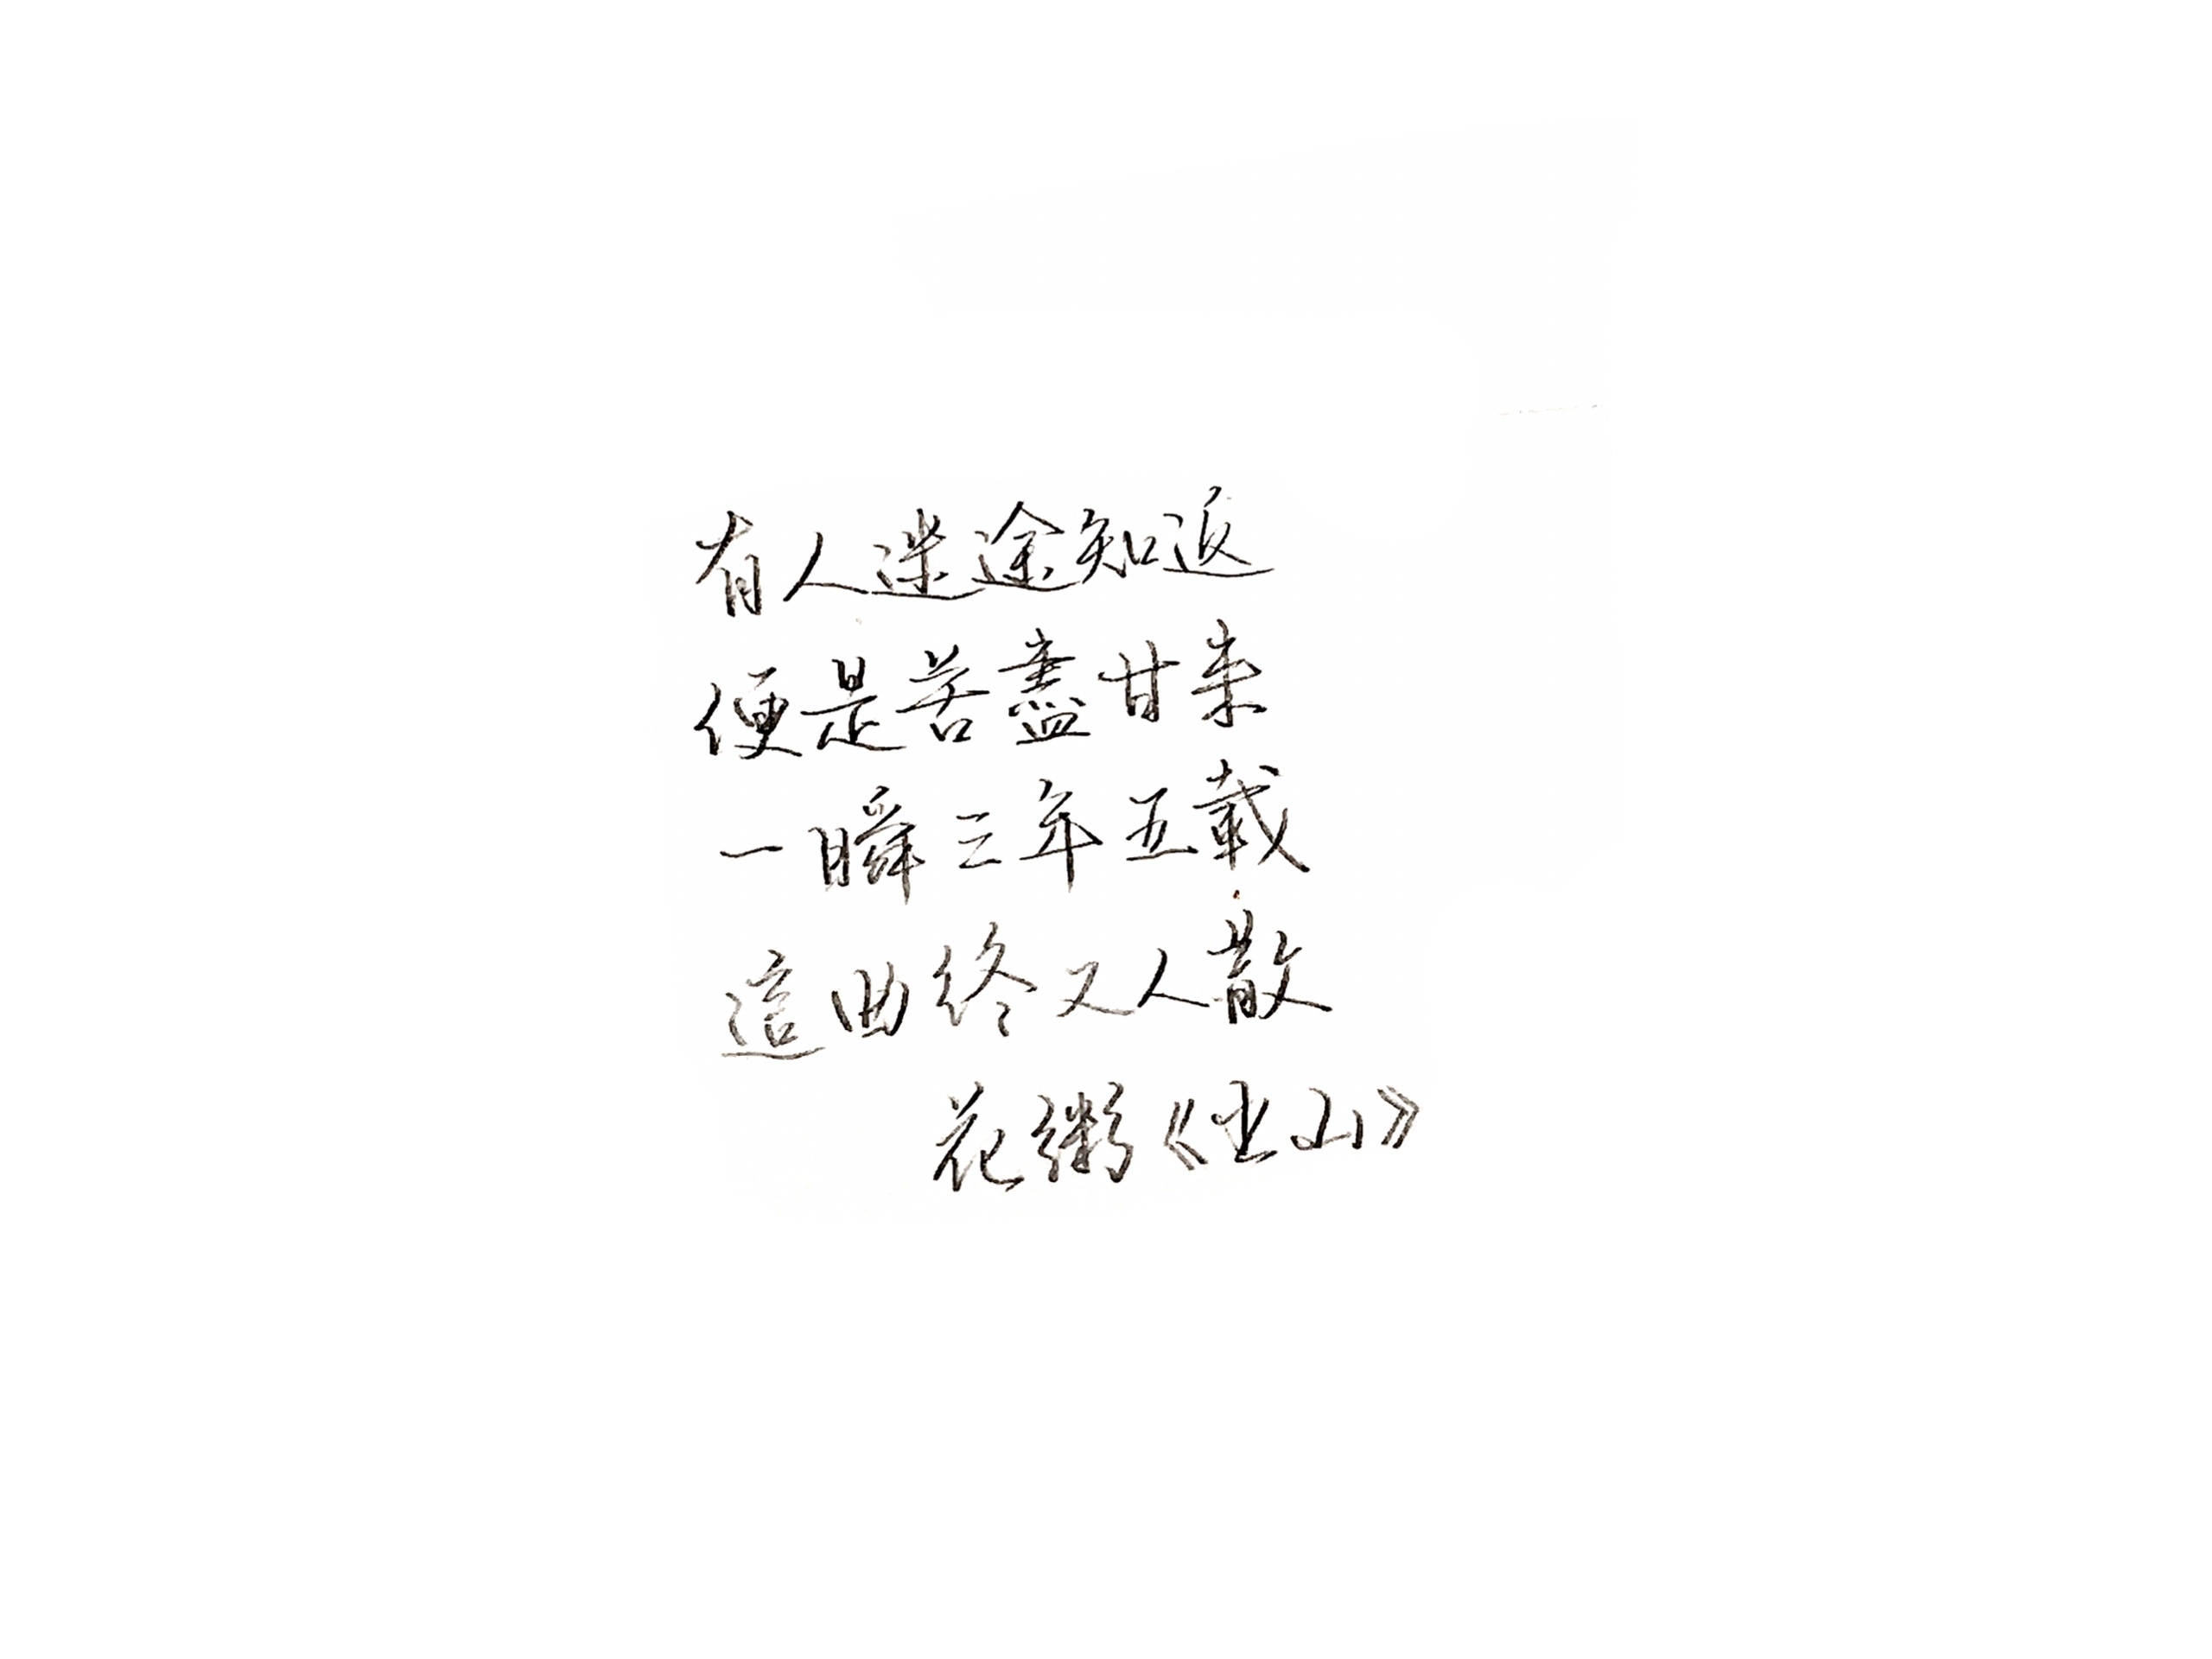 有人迷途知返
便是苦盡甘来
一瞬三年五載
這曲終又人散
花粥《出山》